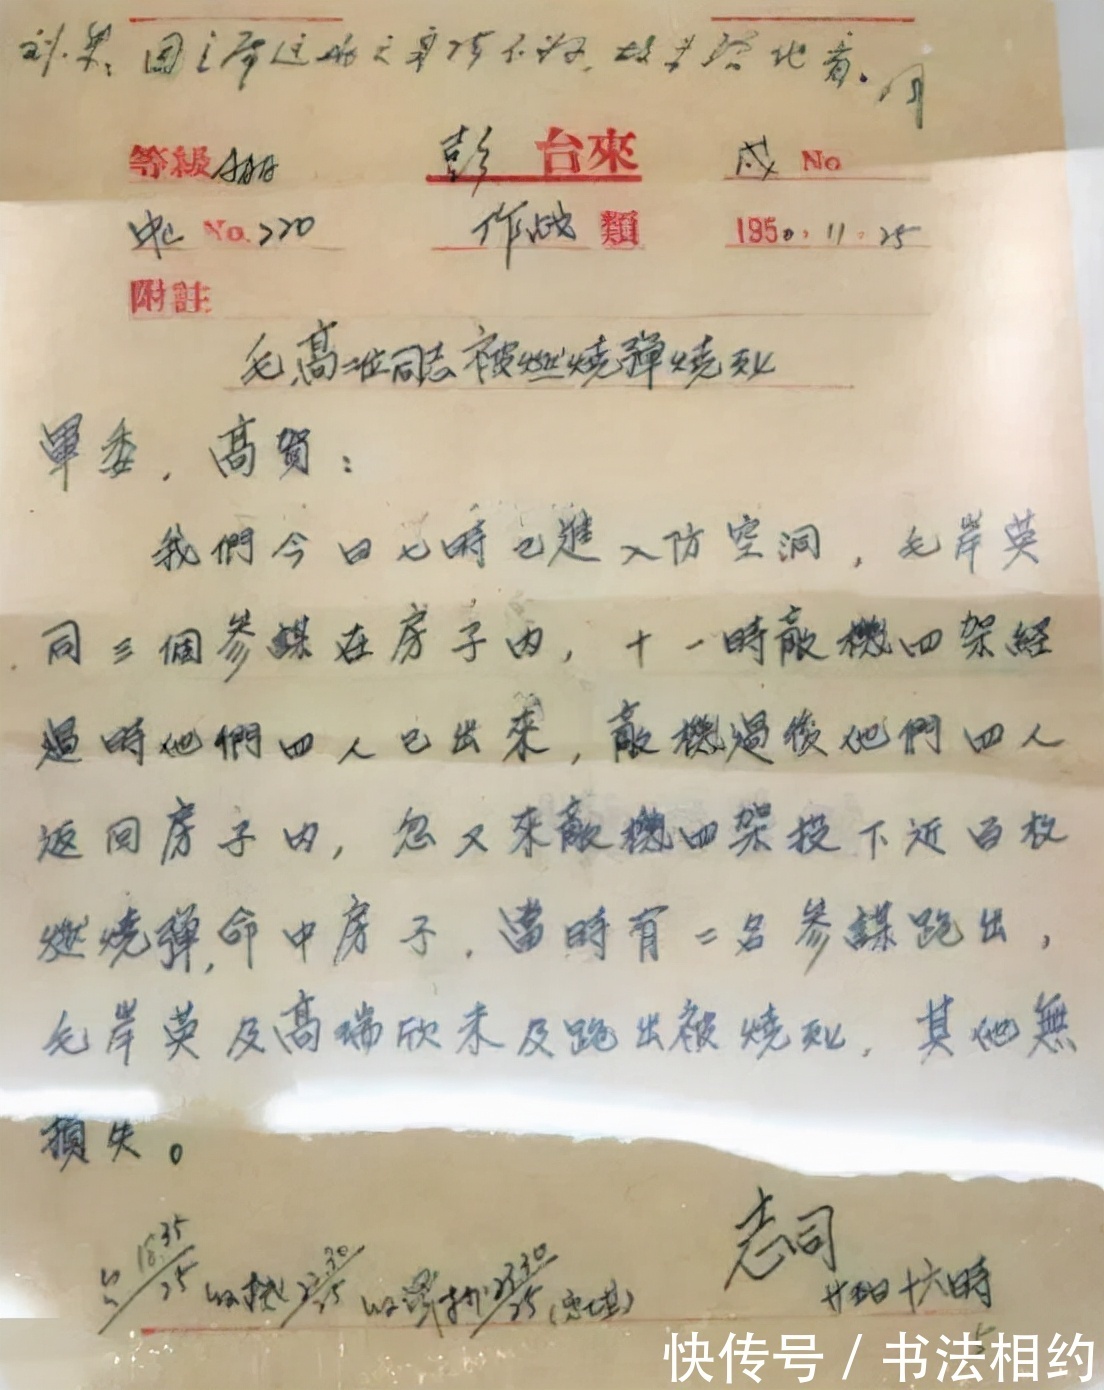 刘、
等級 AAA 彭 台來 戌 No
中 No. 220 作战 類 1950.11.25
附註
毛、高二位同志被燃燒彈燒死
軍委，高賀：
我們今日七時已進入防空洞，毛岸英
同三個參謀在房子內，十一時敵機四架經
過時他們四人已出來，敵機過後他們四人
返回房子內，忽又來敵機四架投下近百枚
燃燒彈，命中房子，當時有二名參謀跑出，
毛岸英及高瑞欣未及跑出被燒死，其他無
損失。
志司
廿五日十六時
快传号 / 书法相约